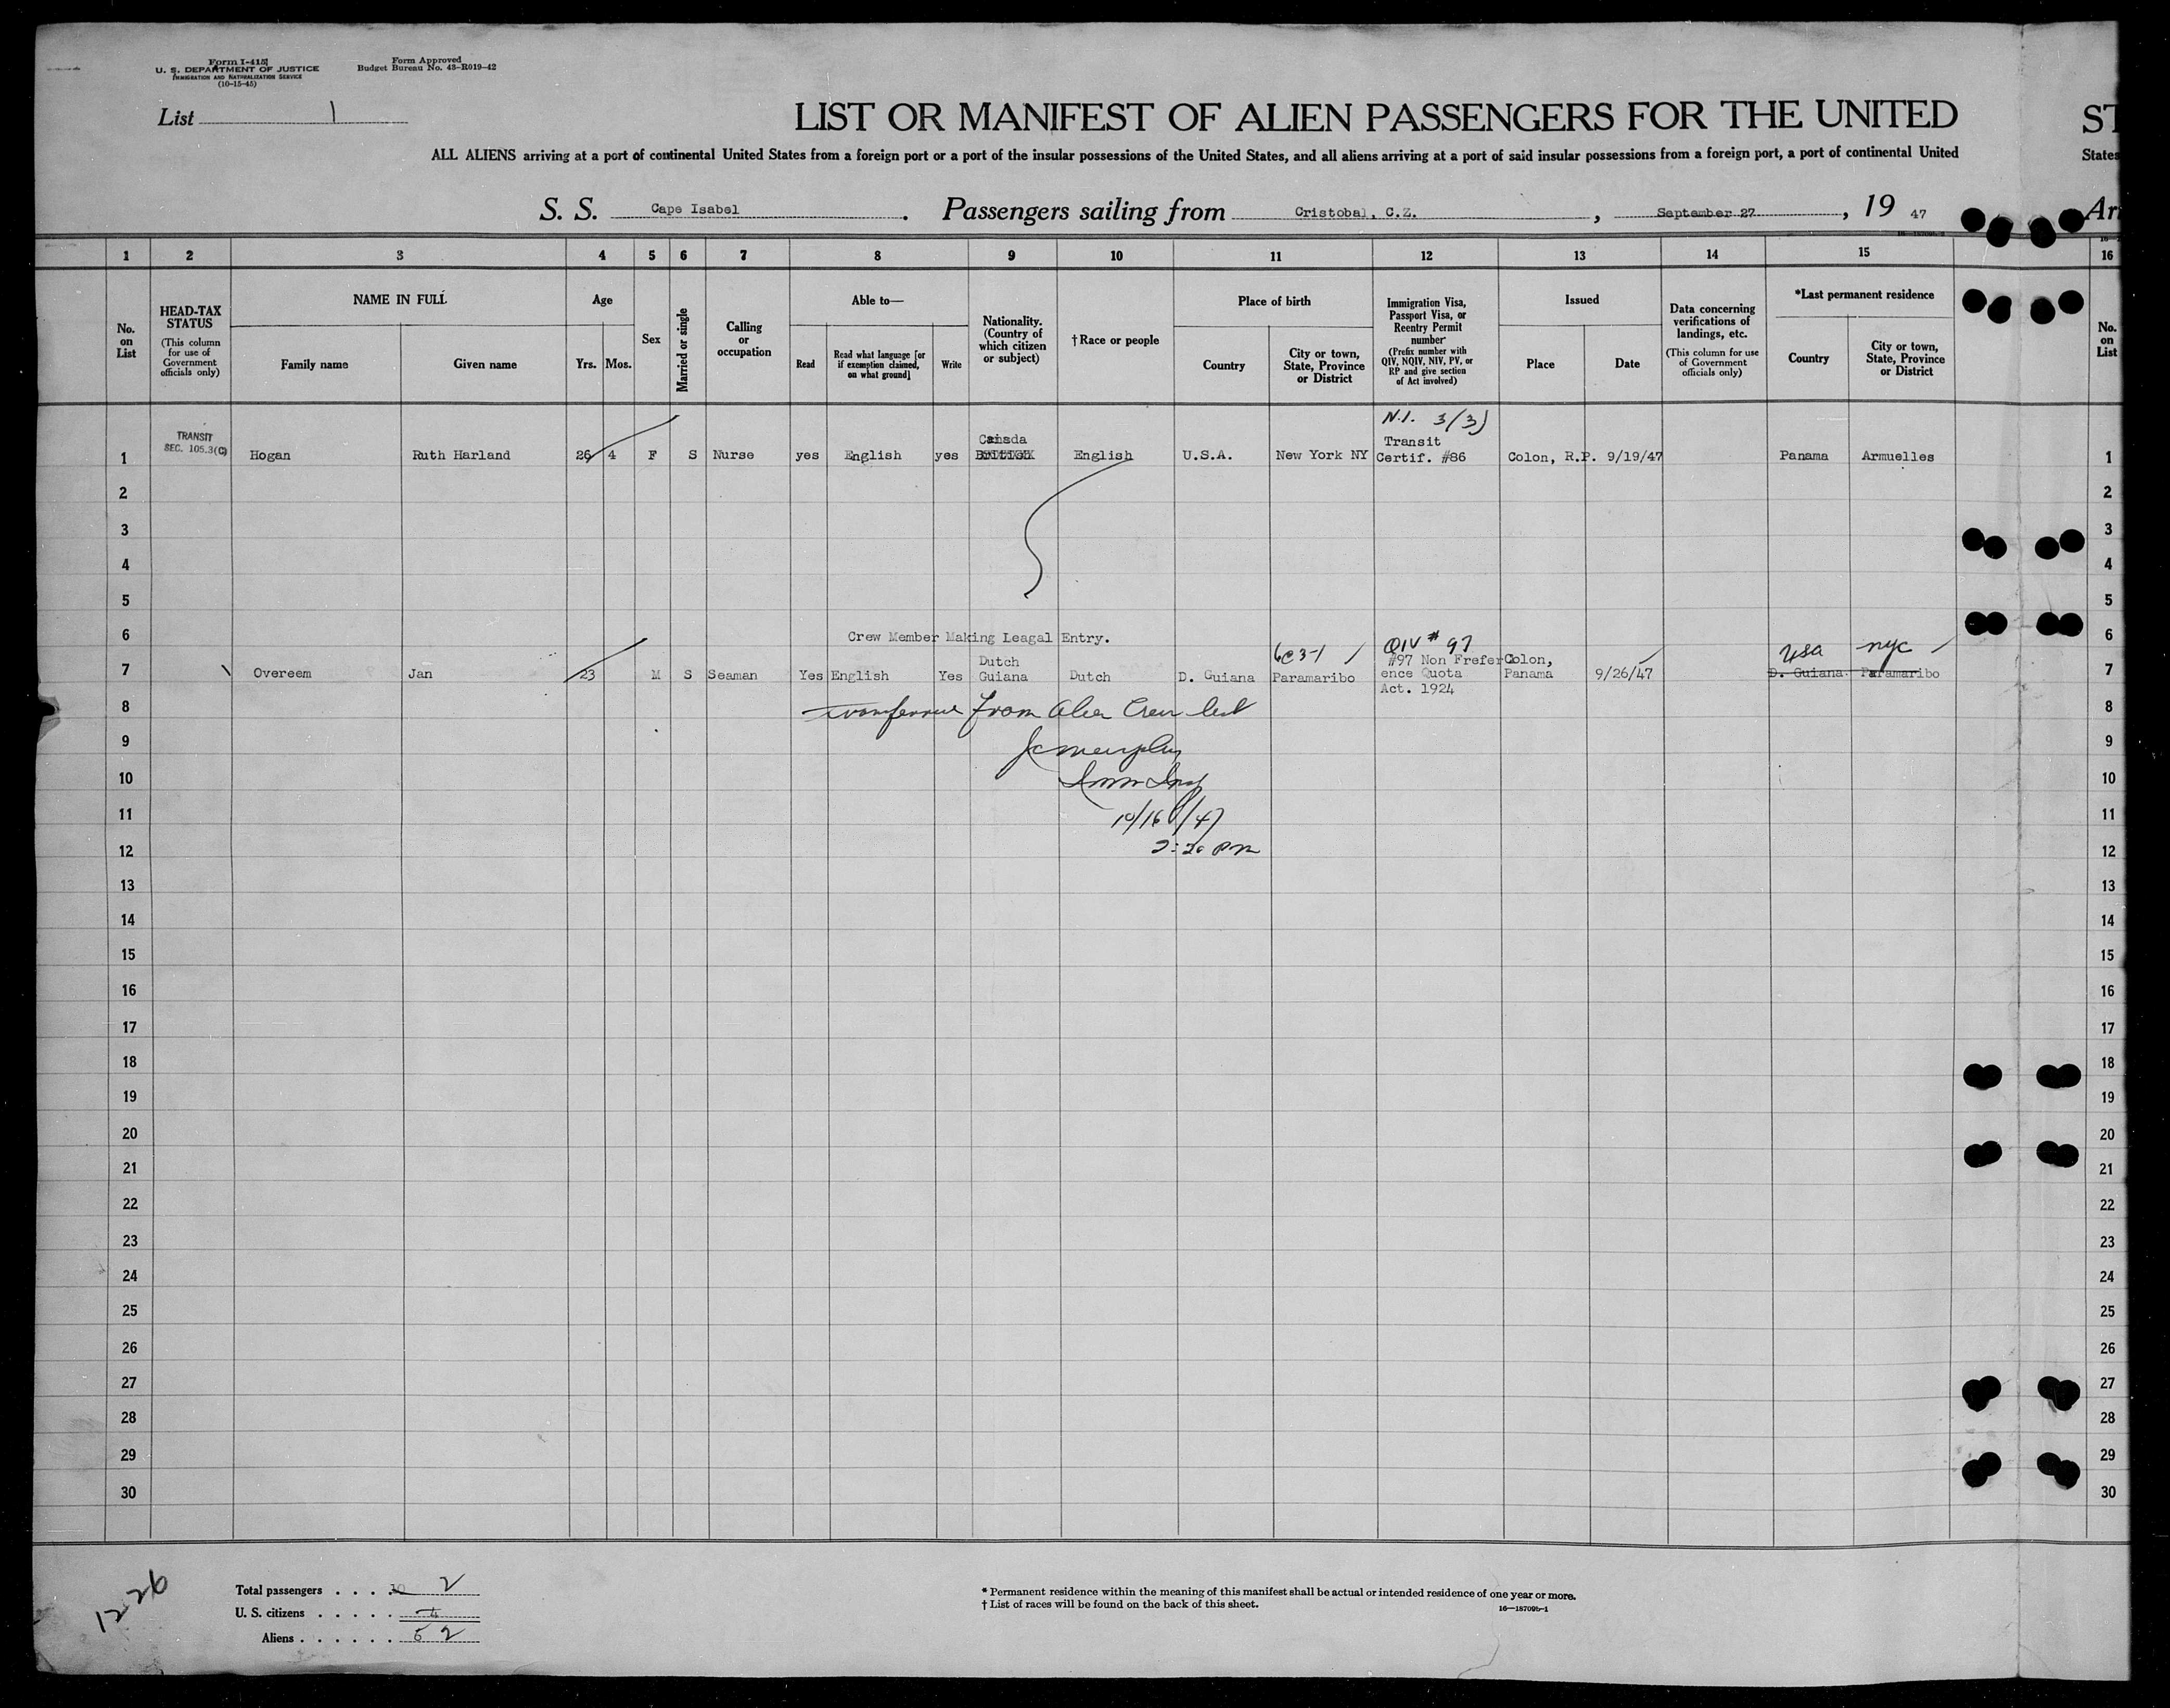 Form I-415
U. S. DEPARTMENT OF JUSTICE
IMMIGRATION AND NATURALIZATION SERVICE
(10-15-45)
Form Approved
Budget Bureau No. 43-R019-42
List 1
LIST OR MANIFEST OF ALIEN PASSENGERS FOR THE UNITED ST
ALL ALIENS arriving at a port of continental United States from a foreign port or a port of the insular possessions of the United States, and all aliens arriving at a port of said insular possessions from a foreign port, a port of continental United States
S. S. Cape Isabel. Passengers sailing from Cristobal, C.Z., September 27, 19 47
1 2 3 4 5 6 7 8 9 10 11 12 13 14 15 16
No. on List
HEAD-TAX STATUS
(This column for use of Government officials only)
NAME IN FULL
Family name Given name
Age
Yrs. Mos.
Sex
Married or single
Calling or occupation
Able to—
Read
Read what language [or if exemption claimed, on what ground]
Write
Nationality. (Country of which citizen or subject)
†Race or people
Place of birth
Country
City or town, State, Province or District
Immigration Visa, Passport Visa, or Reentry Permit number
(Prefix number with QIV, NQIV, NIV, PV, or RP and give section of Act involved)
Issued
Place Date
Data concerning verifications of landings, etc.
(This column for use of Government officials only)
*Last permanent residence
Country
City or town, State, Province or District
No. on List
N.I. 3/3)
TRANSIT
SEC. 105.3(C)
Canada
Transit
1 Hogan Ruth Harland 26 4 F S Nurse yes English yes English U.S.A. New York NY Certif. #86 Colon, R.P. 9/19/47 Panama Armuelles 1
2 2
3 3
4 4
5 5
6 Crew Member Making Leagal Entry. 6
QIV # 97
USA NYC
Dutch #97 Non Frefer Colon,
7 Overeem Jan 23 M S Seaman Yes English Yes Guiana Dutch D. Guiana Paramaribo ence Quota Panama 9/26/47 D. Guiana Paramaribo 7
Act. 1924
8 from Alien Crew list 8
9 9
10 Imm Insp 10
11 10/16/47 11
12 2:20 PM 12
13 13
14 14
15 15
16 16
17 17
18 18
19 19
20 20
21 21
22 22
23 23
24 24
25 25
26 26
27 27
28 28
29 29
30 30
1226
Total passengers . . . . 2
U. S. citizens . . . . .
Aliens . . . . . . 2
* Permanent residence within the meaning of this manifest shall be actual or intended residence of one year or more.
† List of races will be found on the back of this sheet.
16—18709b-1